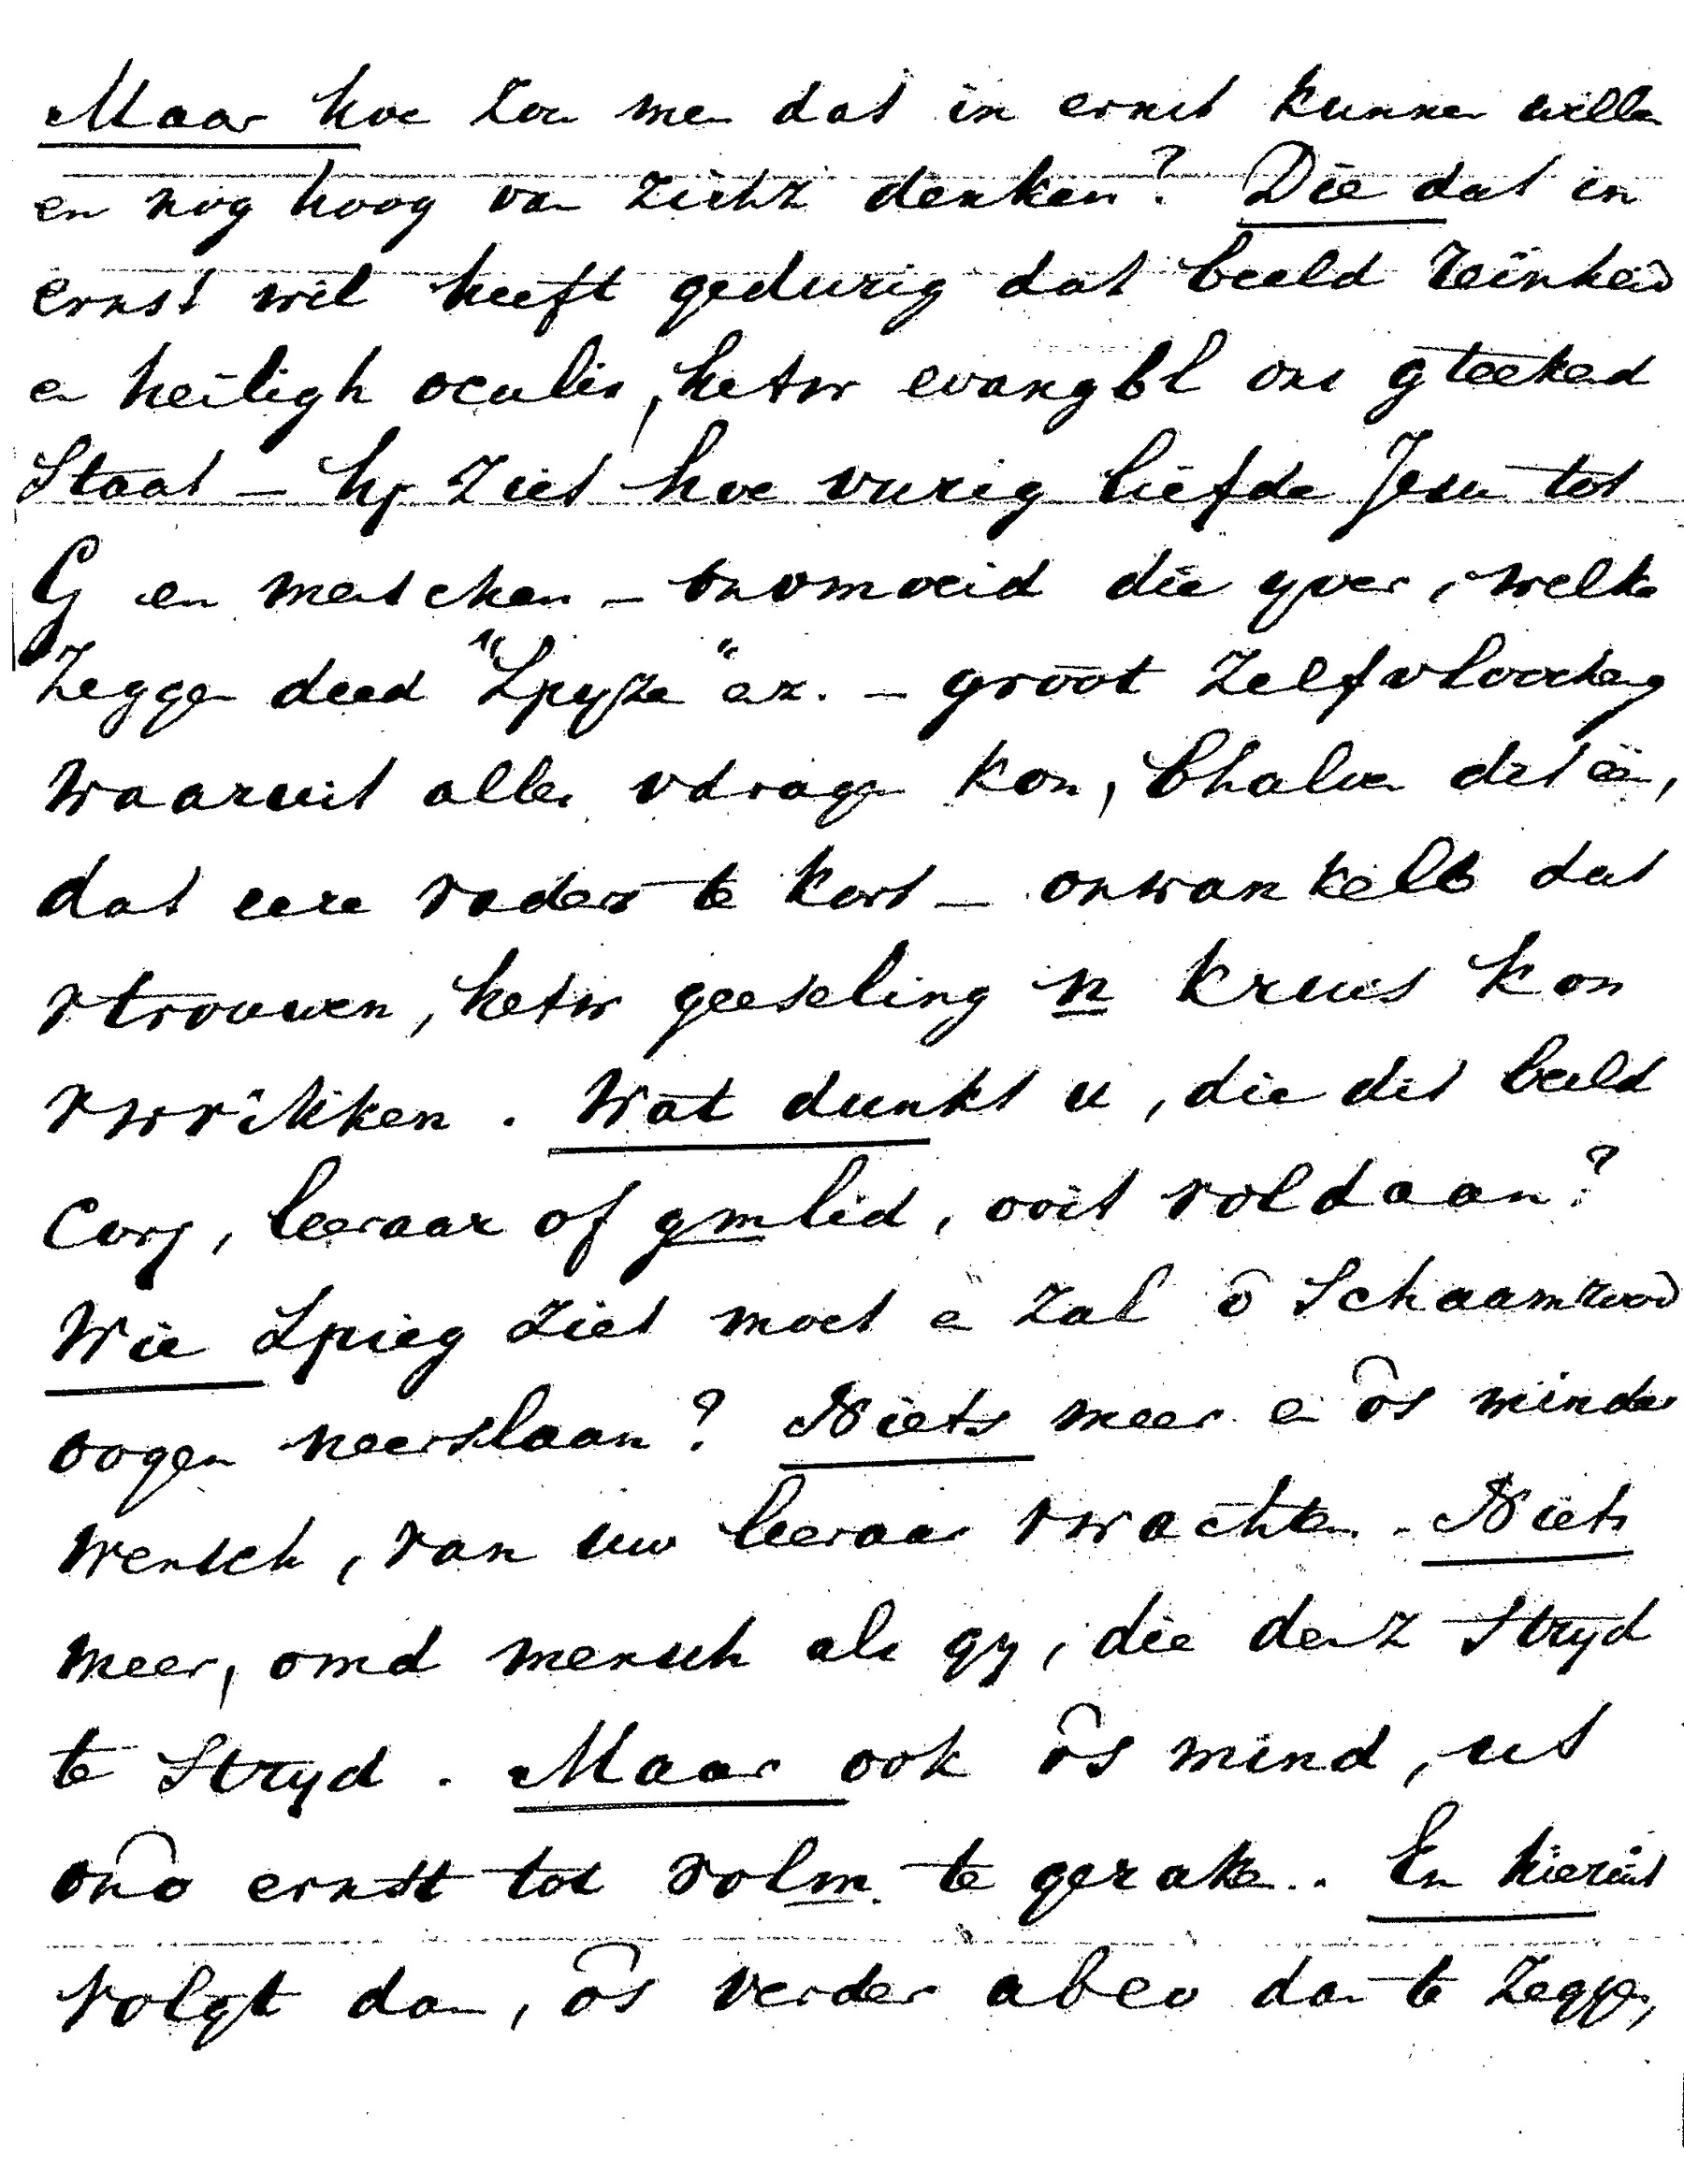 Maar hoe zou me dat in ernst kunnen wille
en nog hoog van zichz denken? Die dat in
ernst wil heeft gedurig dat beeld reinheid
e heiligh oculis, hetw evangbl ons gteekend
staat – hy ziet hoe vurig liefde Jesu tot
G en menschen – onvmoeid die yver, welke
zegge deed "Spyze" enz. – groot zelfvloocheng
waaruit alles vdrage kon, bhalve dit één,
dat eere vaders te kort – onwankelb dat
vtrouwen, hetw geeseling n kruis kon
vwrikken. Wat dunkt u, die dit beeld
Corj, leeraar of gmlid, ooit voldaan?
Wie spieg ziet moet e zal ô schaamrood
oogen neerslaan? Niets meer e ôs minder
wensch, van uw leeraar vwachten. Niets
meer, omd mensch als gy, die denz stryd
te stryd. Maar ook ôs mind, uit
ono ernst tot volm. te gerake.. En hieruit
volgt dan, ôs verder abeo dan te zegge,